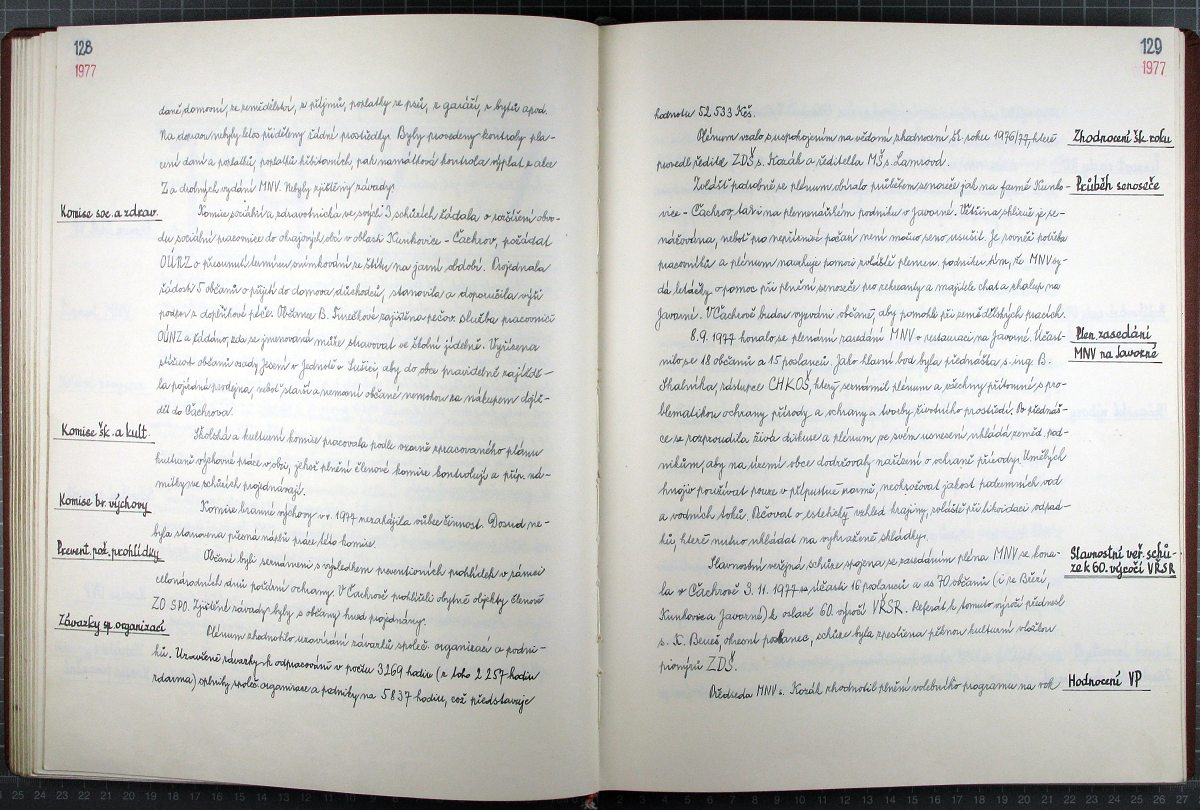 128
1977
daně domovní, ze zemědělství, z příjmů, poplatky ze psů, z garáží, z bytů apod.
Na dopravu nebyly letos přiděleny žádné prostředky. Byly provedeny kontroly pla-
cení daní a poplatků, poplatků hřbitovních, pak namátková kontrola výplat z akce
Z a drobných vydání MNV. Nebyly zjištěny závady.
Komise soc. a zdrav.
Komise sociální a zdravotnická ve svých 3 schůzích žádala o rozšíření obvo-
du sociální pracovnice do okrajových obcí v oblasti Kunkovice - Čachrov, požádat
OÚNZ o přesunutí termínu snímkování ze štítu na jarní období. Projednala
žádosti 5 občanů o přijetí do domova důchodců, stanovila a doporučila výši
podpor z doplňkové péče. Občance B. zajištěna pečov. služba pracovnicí
OÚNZ a žádáno, zda se jmenovaná může stravovat ve školní jídelně. Vyřízena
stížnost občanů osady Jesení v Jednotě v Sušici, aby do obce pravidelně zajíždě-
la pojízdná prodejna, neboť staří a nemocní občané nemohou za nákupem dojíž-
dět do Čachrova.
Komise šk. a kult.
Školská a kulturní komise pracovala podle vzorně zpracovaného plánu
kulturně výchovné práce v obci, jehož plnění členové komise kontrolují a příp. ná-
mitky ve schůzích projednávají.
Komise br. výchovy
Komise branné výchovy v r. 1977 nezahájila vůbec činnost. Dosud ne-
byla stanovena přesná náplň práce této komise.
Prevent. pož. prohlídky
Občané byli seznámeni s výsledkem preventivních prohlídek v rámci
celonárodních dnů požární ochrany. V Čachrově prohlíželi obytné objekty členové
ZO SPO. Zjištěné závady byly s občany hned projednány.
Závazky sp. organizací
Plénum zhodnotilo uzavírání závazků společ. organizací a podni-
ků. Uzavřené závazky k odpracování v počtu 3269 hodin (z toho 2 257 hodin
zdarma) splnily společ. organizace a podniky na 5837 hodin, což představuje
129
1977
hodnotu 52 533 Kčs.
Zhodnocení šk. roku
Plénum vzalo s uspokojením na vědomí zhodnocení šk. roku 1976/77, které
provedl ředitel ZDŠ s. Kozák a ředitelka MŠ s. Lamrová.
Průběh senoseče
Zvlášť podrobně se plénum obíralo průběhem senoseče jak na farmě Kunko-
vice - Čachrov, tak i na plemenářském podniku o Javorné. Většina sklizně je se-
nážována, neboť pro nepříznivé počasí není možno seno usušit. Je rovněž potřeba
pracovníků a plénum navrhuje pomoci zvláště plemen. podniku tím, že MNV vy-
dá letáčky o pomoc při plnění senoseče pro rekreanty a majitele chat a chalup na
Javorné. V Čachrově budou vyzváni občané, aby pomohli při zemědělských pracích.
Plen. zasedání
MNV na Javorné
8.9. 1977 konalo se plenární zasedání MNV v restauraci na Javorné. Účast-
nilo se 18 občanů a 15 poslanců. Jako hlavní bod byla přednáška s. ing. B.
Skalníka, zástupce CHKOŠ, který seznámil plénum a všechny přítomné s pro-
blematikou ochrany přírody a ochrany a tvorby životního prostředí. Po přednáš-
ce se rozproudila živá diskuse a plénum ve svém usnesení ukládá zeměd. pod-
nikům, aby na území obce dodržovaly nařízení o ochraně přírody. Umělých
hnojiv používat pouze v přípustné normě, neohrožovat jakost podzemních vod
a vodních toků. Pečovat o estetický vzhled krajiny, zvláště při likvidaci odpad-
ků, které nutno ukládat na vyhrazené skládky.
Slavnostní veř. schů-
ze k 60. výročí VŘSR
Slavnostní veřejná schůze spojena se zasedáním pléna MNV se kona-
la v Čachrově 3. 11. 1977 za účasti 16 poslanců a as 70 občanů (i ze Břézí,
Kunkovic a Javorné) k oslavě 60. výročí VŘSR. Referát k tomuto výročí přednesl
s. K. Beneš, okresní poslanec, schůze byla zpestřena pěknou kulturní vložkou
pionýrů ZDŠ.
Hodnocení VP
Předseda MNV s. Kozák zhodnotil plnění volebního programu na rok